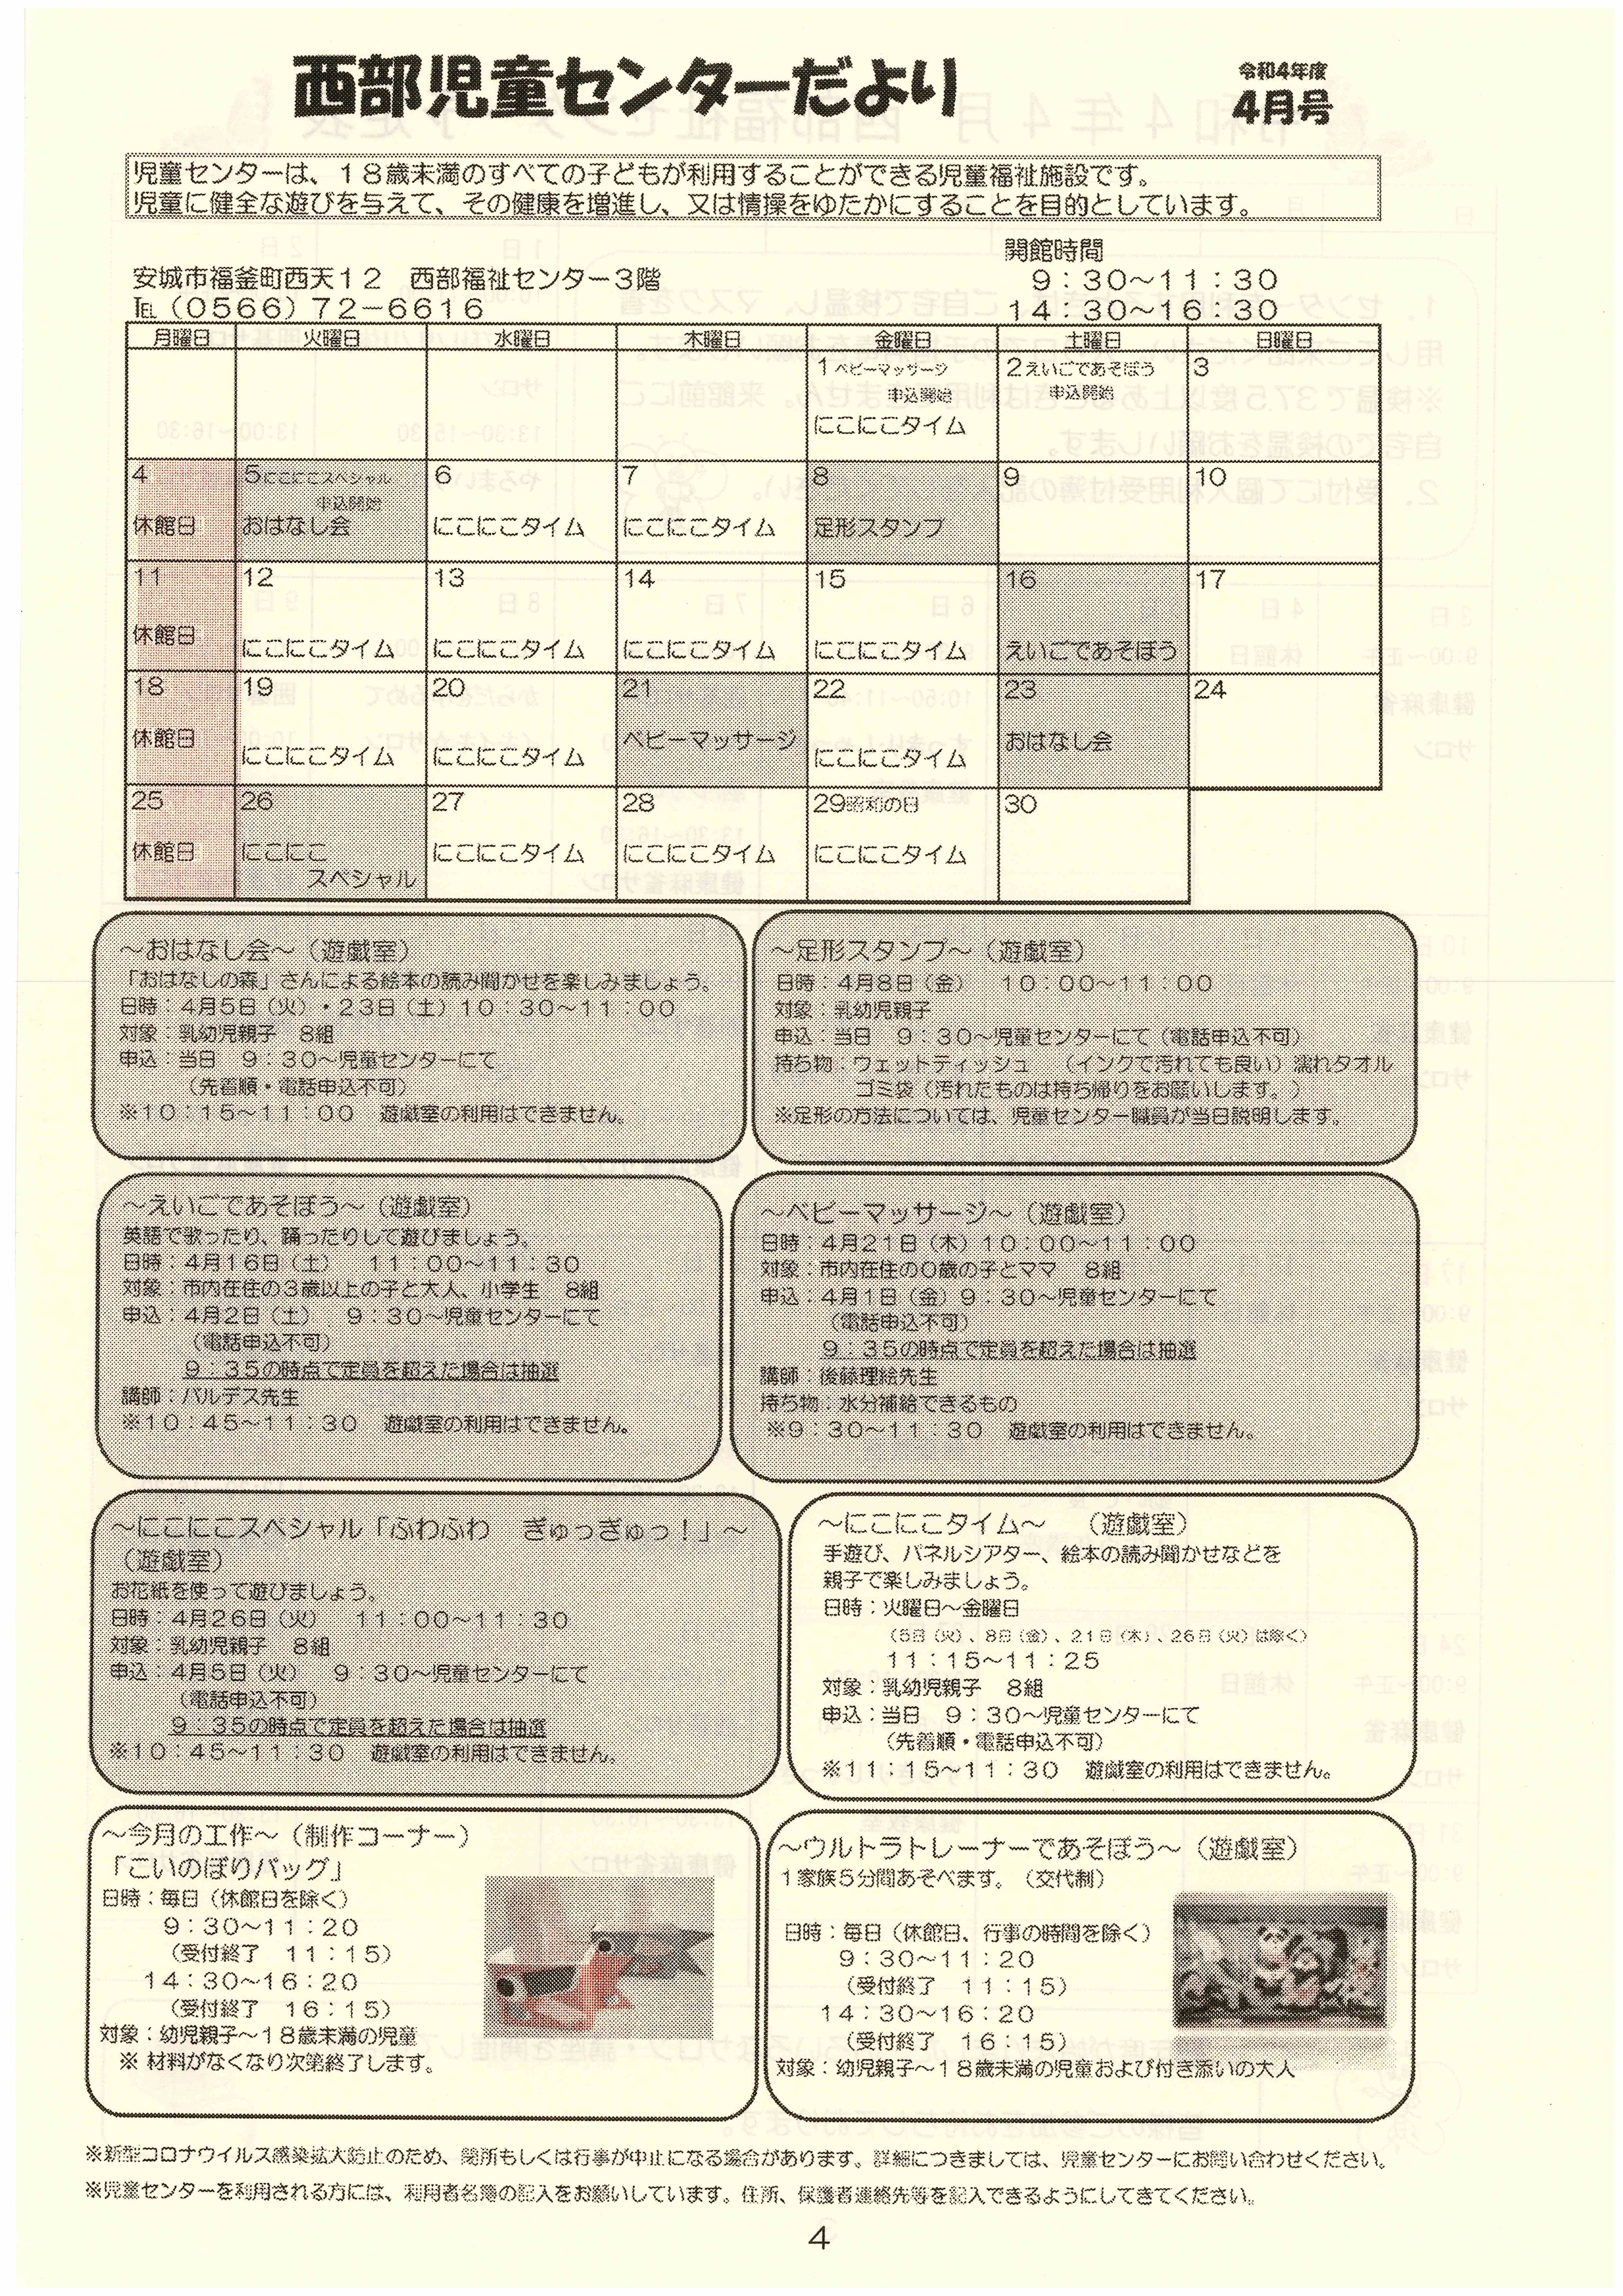 西部児童センターだより
令和4年度
4月号
児童センターは、１８歳未満のすべての子どもが利用することができる児童福祉施設です。
児童に健全な遊びを与えて、その健康を増進し、又は情操をゆたかにすることを目的としています。
開館時間
安城市福釜町西天１２　西部福祉センター３階
９：３０～１１：３０
℡（０５６６）７２－６６１６
１４：３０～１６：３０
月曜日 火曜日 水曜日 木曜日 金曜日 土曜日 日曜日
1 ベビーマッサージ
申込開始
にこにこタイム
2 えいごであそぼう
申込開始
3
4
休館日
5 にこにこスペシャル
申込開始
おはなし会
6
にこにこタイム
7
にこにこタイム
8
足形スタンプ
9
10
11
休館日
12
にこにこタイム
13
にこにこタイム
14
にこにこタイム
15
にこにこタイム
16
えいごであそぼう
17
18
休館日
19
にこにこタイム
20
にこにこタイム
21
ベビーマッサージ
22
にこにこタイム
23
おはなし会
24
25
休館日
26
にこにこ
スペシャル
27
にこにこタイム
28
にこにこタイム
29昭和の日
にこにこタイム
30
～おはなし会～（遊戯室）
「おはなしの森」さんによる絵本の読み聞かせを楽しみましょう。
日時：４月５日（火）・２３日（土）１０：３０～１１：００
対象：乳幼児親子　８組
申込：当日　９：３０～児童センターにて
（先着順・電話申込不可）
※１０：１５～１１：００　遊戯室の利用はできません。
～足形スタンプ～（遊戯室）
日時：４月８日（金）　１０：００～１１：００
対象：乳幼児親子
申込：当日　９：３０～児童センターにて（電話申込不可）
持ち物：ウェットティッシュ　（インクで汚れても良い）濡れタオル
ゴミ袋（汚れたものは持ち帰りをお願いします。）
※足形の方法については、児童センター職員が当日説明します。
～えいごであそぼう～（遊戯室）
英語で歌ったり、踊ったりして遊びましょう。
日時：４月１６日（土）　１１：００～１１：３０
対象：市内在住の３歳以上の子と大人、小学生　８組
申込：４月２日（土）　９：３０～児童センターにて
（電話申込不可）
９：３５の時点で定員を超えた場合は抽選
講師：バルデス先生
※１０：４５～１１：３０　遊戯室の利用はできません。
～ベビーマッサージ～（遊戯室）
日時：４月２１日（木）１０：００～１１：００
対象：市内在住の０歳の子とママ　８組
申込：４月１日（金）９：３０～児童センターにて
（電話申込不可）
９：３５の時点で定員を超えた場合は抽選
講師：後藤理絵先生
持ち物：水分補給できるもの
※９：３０～１１：３０　遊戯室の利用はできません。
～にこにこスペシャル「ふわふわ　ぎゅっぎゅっ！」～
（遊戯室）
お花紙を使って遊びましょう。
日時：４月２６日（火）　１１：００～１１：３０
対象：乳幼児親子　８組
申込：４月５日（火）　９：３０～児童センターにて
（電話申込不可）
９：３５の時点で定員を超えた場合は抽選
※１０：４５～１１：３０　遊戯室の利用はできません。
～にこにこタイム～　（遊戯室）
手遊び、パネルシアター、絵本の読み聞かせなどを
親子で楽しみましょう。
日時：火曜日～金曜日
（５日（火）、８日（金）、２１日（木）、２６日（火）は除く）
１１：１５～１１：２５
対象：乳幼児親子　８組
申込：当日　９：３０～児童センターにて
（先着順・電話申込不可）
※１１：１５～１１：３０　遊戯室の利用はできません。
～今月の工作～（制作コーナー）
「こいのぼりバッグ」
日時：毎日（休館日を除く）
９：３０～１１：２０
（受付終了　１１：１５）
１４：３０～１６：２０
（受付終了　１６：１５）
対象：幼児親子～１８歳未満の児童
※ 材料がなくなり次第終了します。
～ウルトラトレーナーであそぼう～（遊戯室）
１家族５分間あそべます。（交代制）
日時：毎日（休館日、行事の時間を除く）
９：３０～１１：２０
（受付終了　１１：１５）
１４：３０～１６：２０
（受付終了　１６：１５）
対象：幼児親子～１８歳未満の児童および付き添いの大人
※新型コロナウイルス感染拡大防止のため、閉所もしくは行事が中止になる場合があります。詳細につきましては、児童センターにお問い合わせください。
※児童センターを利用される方には、利用者名簿の記入をお願いしています。住所、保護者連絡先等を記入できるようにしてきてください。
4